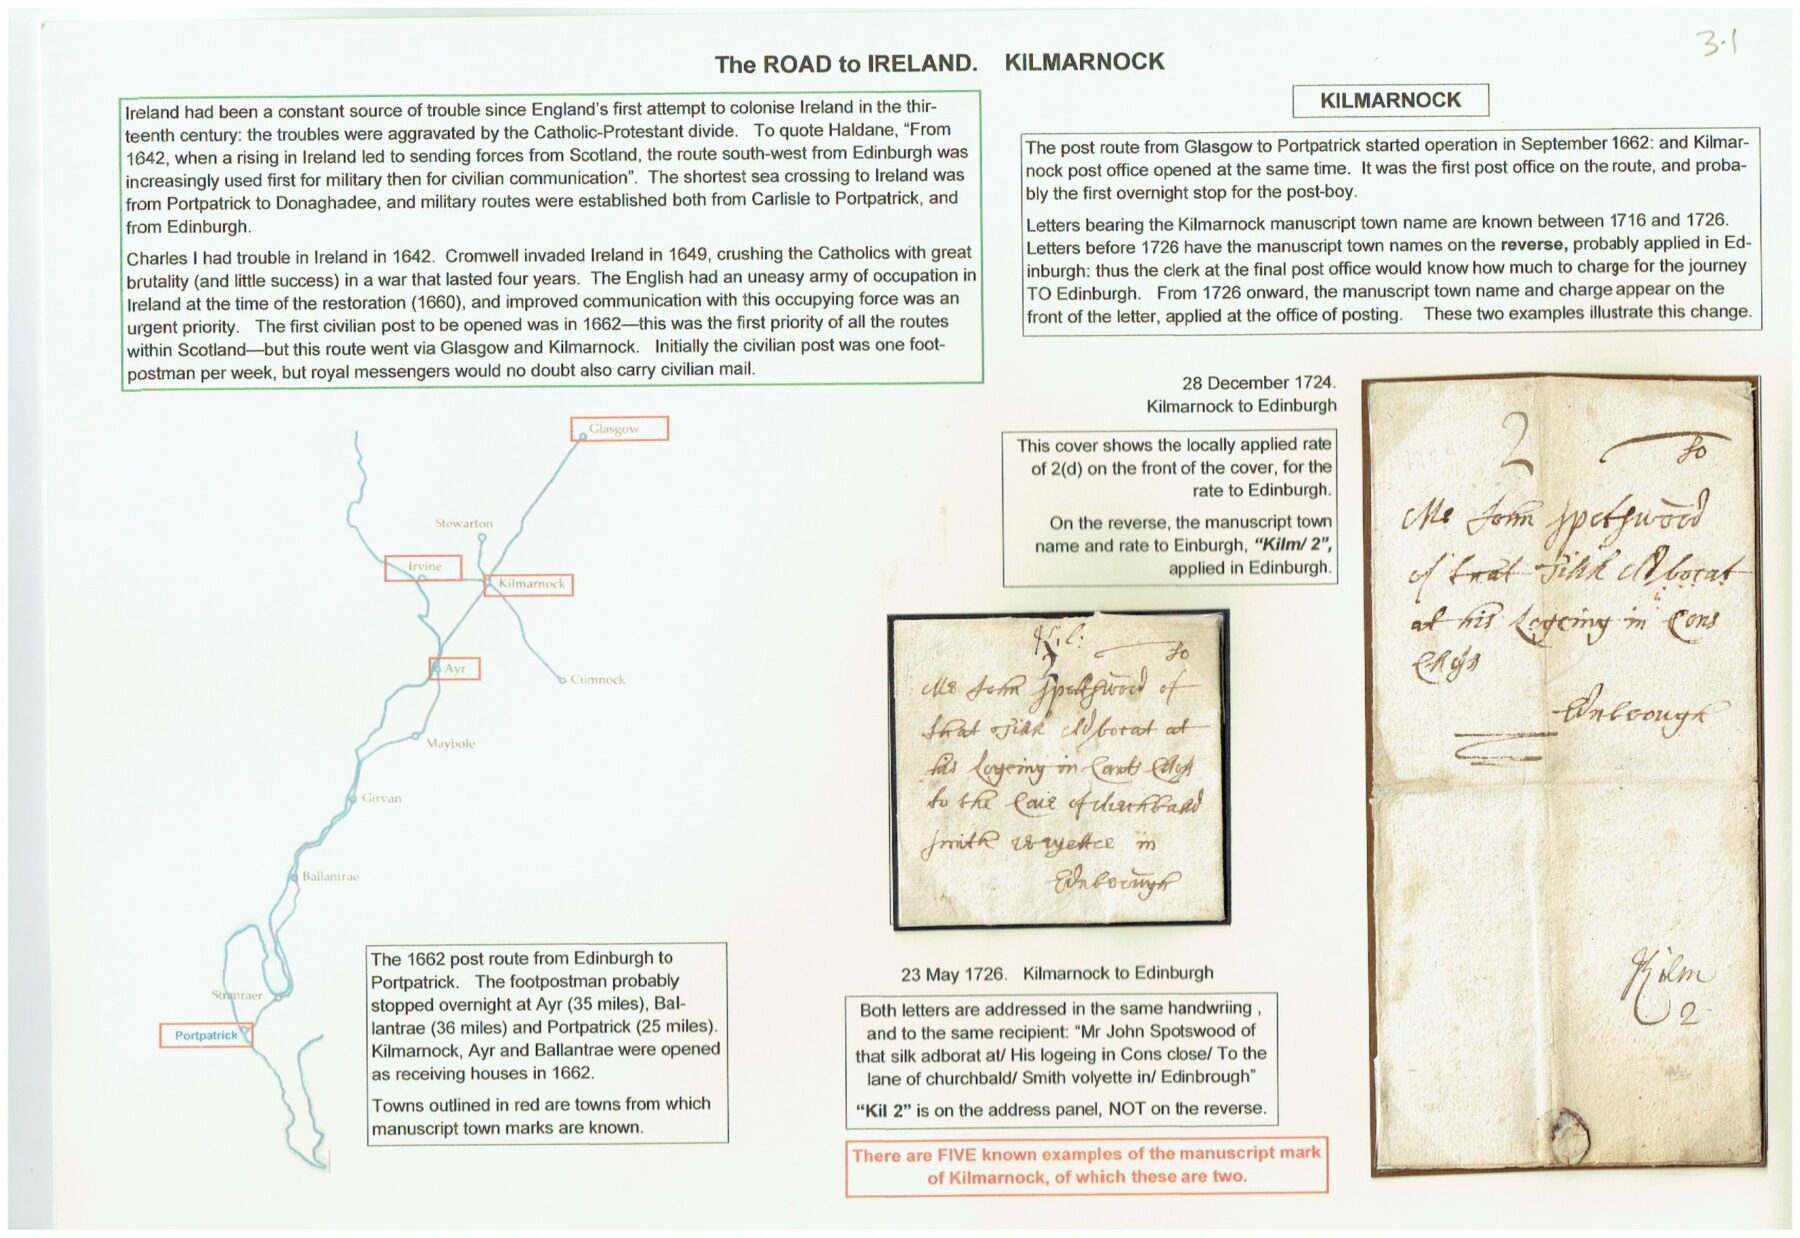 3.1
The ROAD to IRELAND. KILMARNOCK
Ireland had been a constant source of trouble since England's first attempt to colonise Ireland in the thir-
teenth century: the troubles were aggravated by the Catholic-Protestant divide. To quote Haldane, "From
1642, when a rising in Ireland led to sending forces from Scotland, the route south-west from Edinburgh was
increasingly used first for military then for civilian communication". The shortest sea crossing to Ireland was
from Portpatrick to Donaghadee, and military routes were established both from Carlisle to Portpatrick, and
from Edinburgh.
Charles I had trouble in Ireland in 1642. Cromwell invaded Ireland in 1649, crushing the Catholics with great
brutality (and little success) in a war that lasted four years. The English had an uneasy army of occupation in
Ireland at the time of the restoration (1660), and improved communication with this occupying force was an
urgent priority. The first civilian post to be opened was in 1662—this was the first priority of all the routes
within Scotland—but this route went via Glasgow and Kilmarnock. Initially the civilian post was one foot-
postman per week, but royal messengers would no doubt also carry civilian mail.
KILMARNOCK
The post route from Glasgow to Portpatrick started operation in September 1662: and Kilmar-
nock post office opened at the same time. It was the first post office on the route, and proba-
bly the first overnight stop for the post-boy.
Letters bearing the Kilmarnock manuscript town name are known between 1716 and 1726.
Letters before 1726 have the manuscript town names on the reverse, probably applied in Ed-
inburgh: thus the clerk at the final post office would know how much to charge for the journey
TO Edinburgh. From 1726 onward, the manuscript town name and charge appear on the
front of the letter, applied at the office of posting. These two examples illustrate this change.
Glasgow
Stewarton
Irvine
Kilmarnock
Ayr
Cumnock
Maybole
Girvan
Ballantrae
Stranraer
Portpatrick
The 1662 post route from Edinburgh to
Portpatrick. The footpostman probably
stopped overnight at Ayr (35 miles), Bal-
lantrae (36 miles) and Portpatrick (25 miles).
Kilmarnock, Ayr and Ballantrae were opened
as receiving houses in 1662.
Towns outlined in red are towns from which
manuscript town marks are known.
28 December 1724.
Kilmarnock to Edinburgh
This cover shows the locally applied rate
of 2(d) on the front of the cover, for the
rate to Edinburgh.
On the reverse, the manuscript town
name and rate to Einburgh, "Kilm/ 2",
applied in Edinburgh.
Kil:
2
To
Mr John Spotswood of
that Silk Adborat at
his Logeing in Cons Close
to the
Smith in
Ednbrough
23 May 1726. Kilmarnock to Edinburgh
Both letters are addressed in the same handwriing ,
and to the same recipient: "Mr John Spotswood of
that silk adborat at/ His logeing in Cons close/ To the
lane of churchbald/ Smith volyette in/ Edinbrough"
"Kil 2" is on the address panel, NOT on the reverse.
There are FIVE known examples of the manuscript mark
of Kilmarnock, of which these are two.
2
To
Mr John Spotswood
of that Silk Adborat
at his Logeing in Cons
Close
Ednbrough
Kilm
2